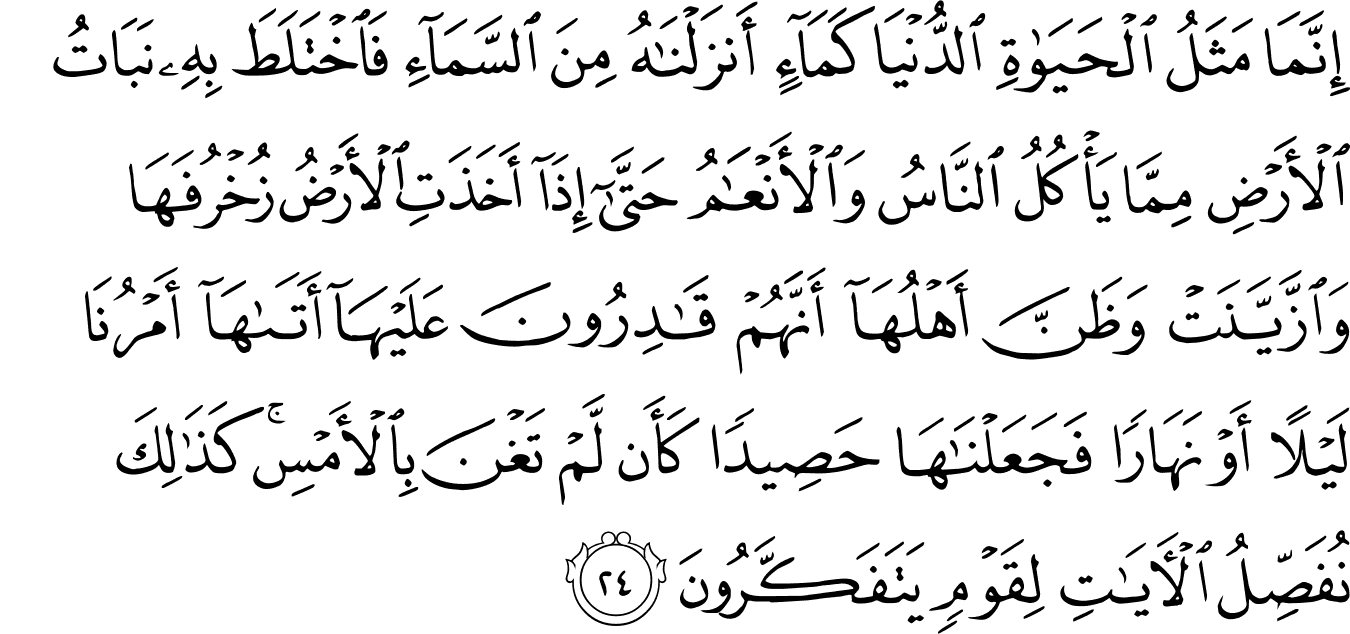 إِنَّمَا مَثَلُ ٱلْحَيَوٰةِ ٱلدُّنْيَا كَمَآءٍ أَنزَلْنَـٰهُ مِنَ ٱلسَّمَآءِ فَٱخْتَلَطَ بِهِۦ نَبَاتُ
ٱلْأَرْضِ مِمَّا يَأْكُلُ ٱلنَّاسُ وَٱلْأَنْعَـٰمُ حَتَّىٰٓ إِذَآ أَخَذَتِ ٱلْأَرْضُ زُخْرُفَهَا
وَٱزَّيَّنَتْ وَظَنَّ أَهْلُهَآ أَنَّهُمْ قَـٰدِرُونَ عَلَيْهَآ أَتَىٰهَآ أَمْرُنَا
لَيْلًا أَوْ نَهَارًا فَجَعَلْنَـٰهَا حَصِيدًا كَأَن لَّمْ تَغْنَ بِٱلْأَمْسِ ۚ كَذَٰلِكَ
نُفَصِّلُ ٱلْـَٔايَـٰتِ لِقَوْمٍ يَتَفَكَّرُونَ ٢٤